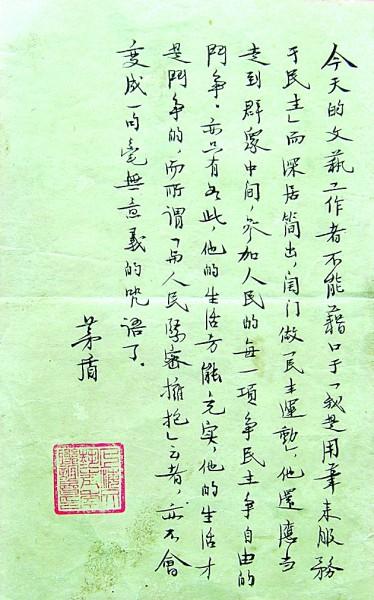 今天的文藝工作者不能藉口于「我是用筆来服務
于民主」而深居简出,闭门做「民主運動」,他還應当
走到群眾中间,参加人民的每一項争民主争自由的
鬥争。亦只有如此,他的生活方能充实,他的生活才
是鬥争的,而所谓「与人民緊密擁抱」云者,亦不會
变成一句毫無意義的咒语了。
茅盾